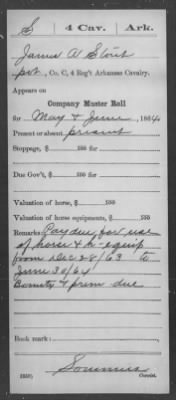 S | 4 Cav. | Ark.
James A Stout
Pvt., Co. C, 4 Reg't Arkansas Cavalry.
Appears on
Company Muster Roll
for May & June, 1864.
Present or absent present
Stoppage, $ 100 for
Due Gov't, $ 100 for
Valuation of horse, $ 100
Valuation of horse equipments, $ 100
Remarks: Pay due for use
of horse & h-equip
from Dec 28/63 to
June 30/64
Bounty & prem due
Book mark:
Sommers
(358) Copyist.